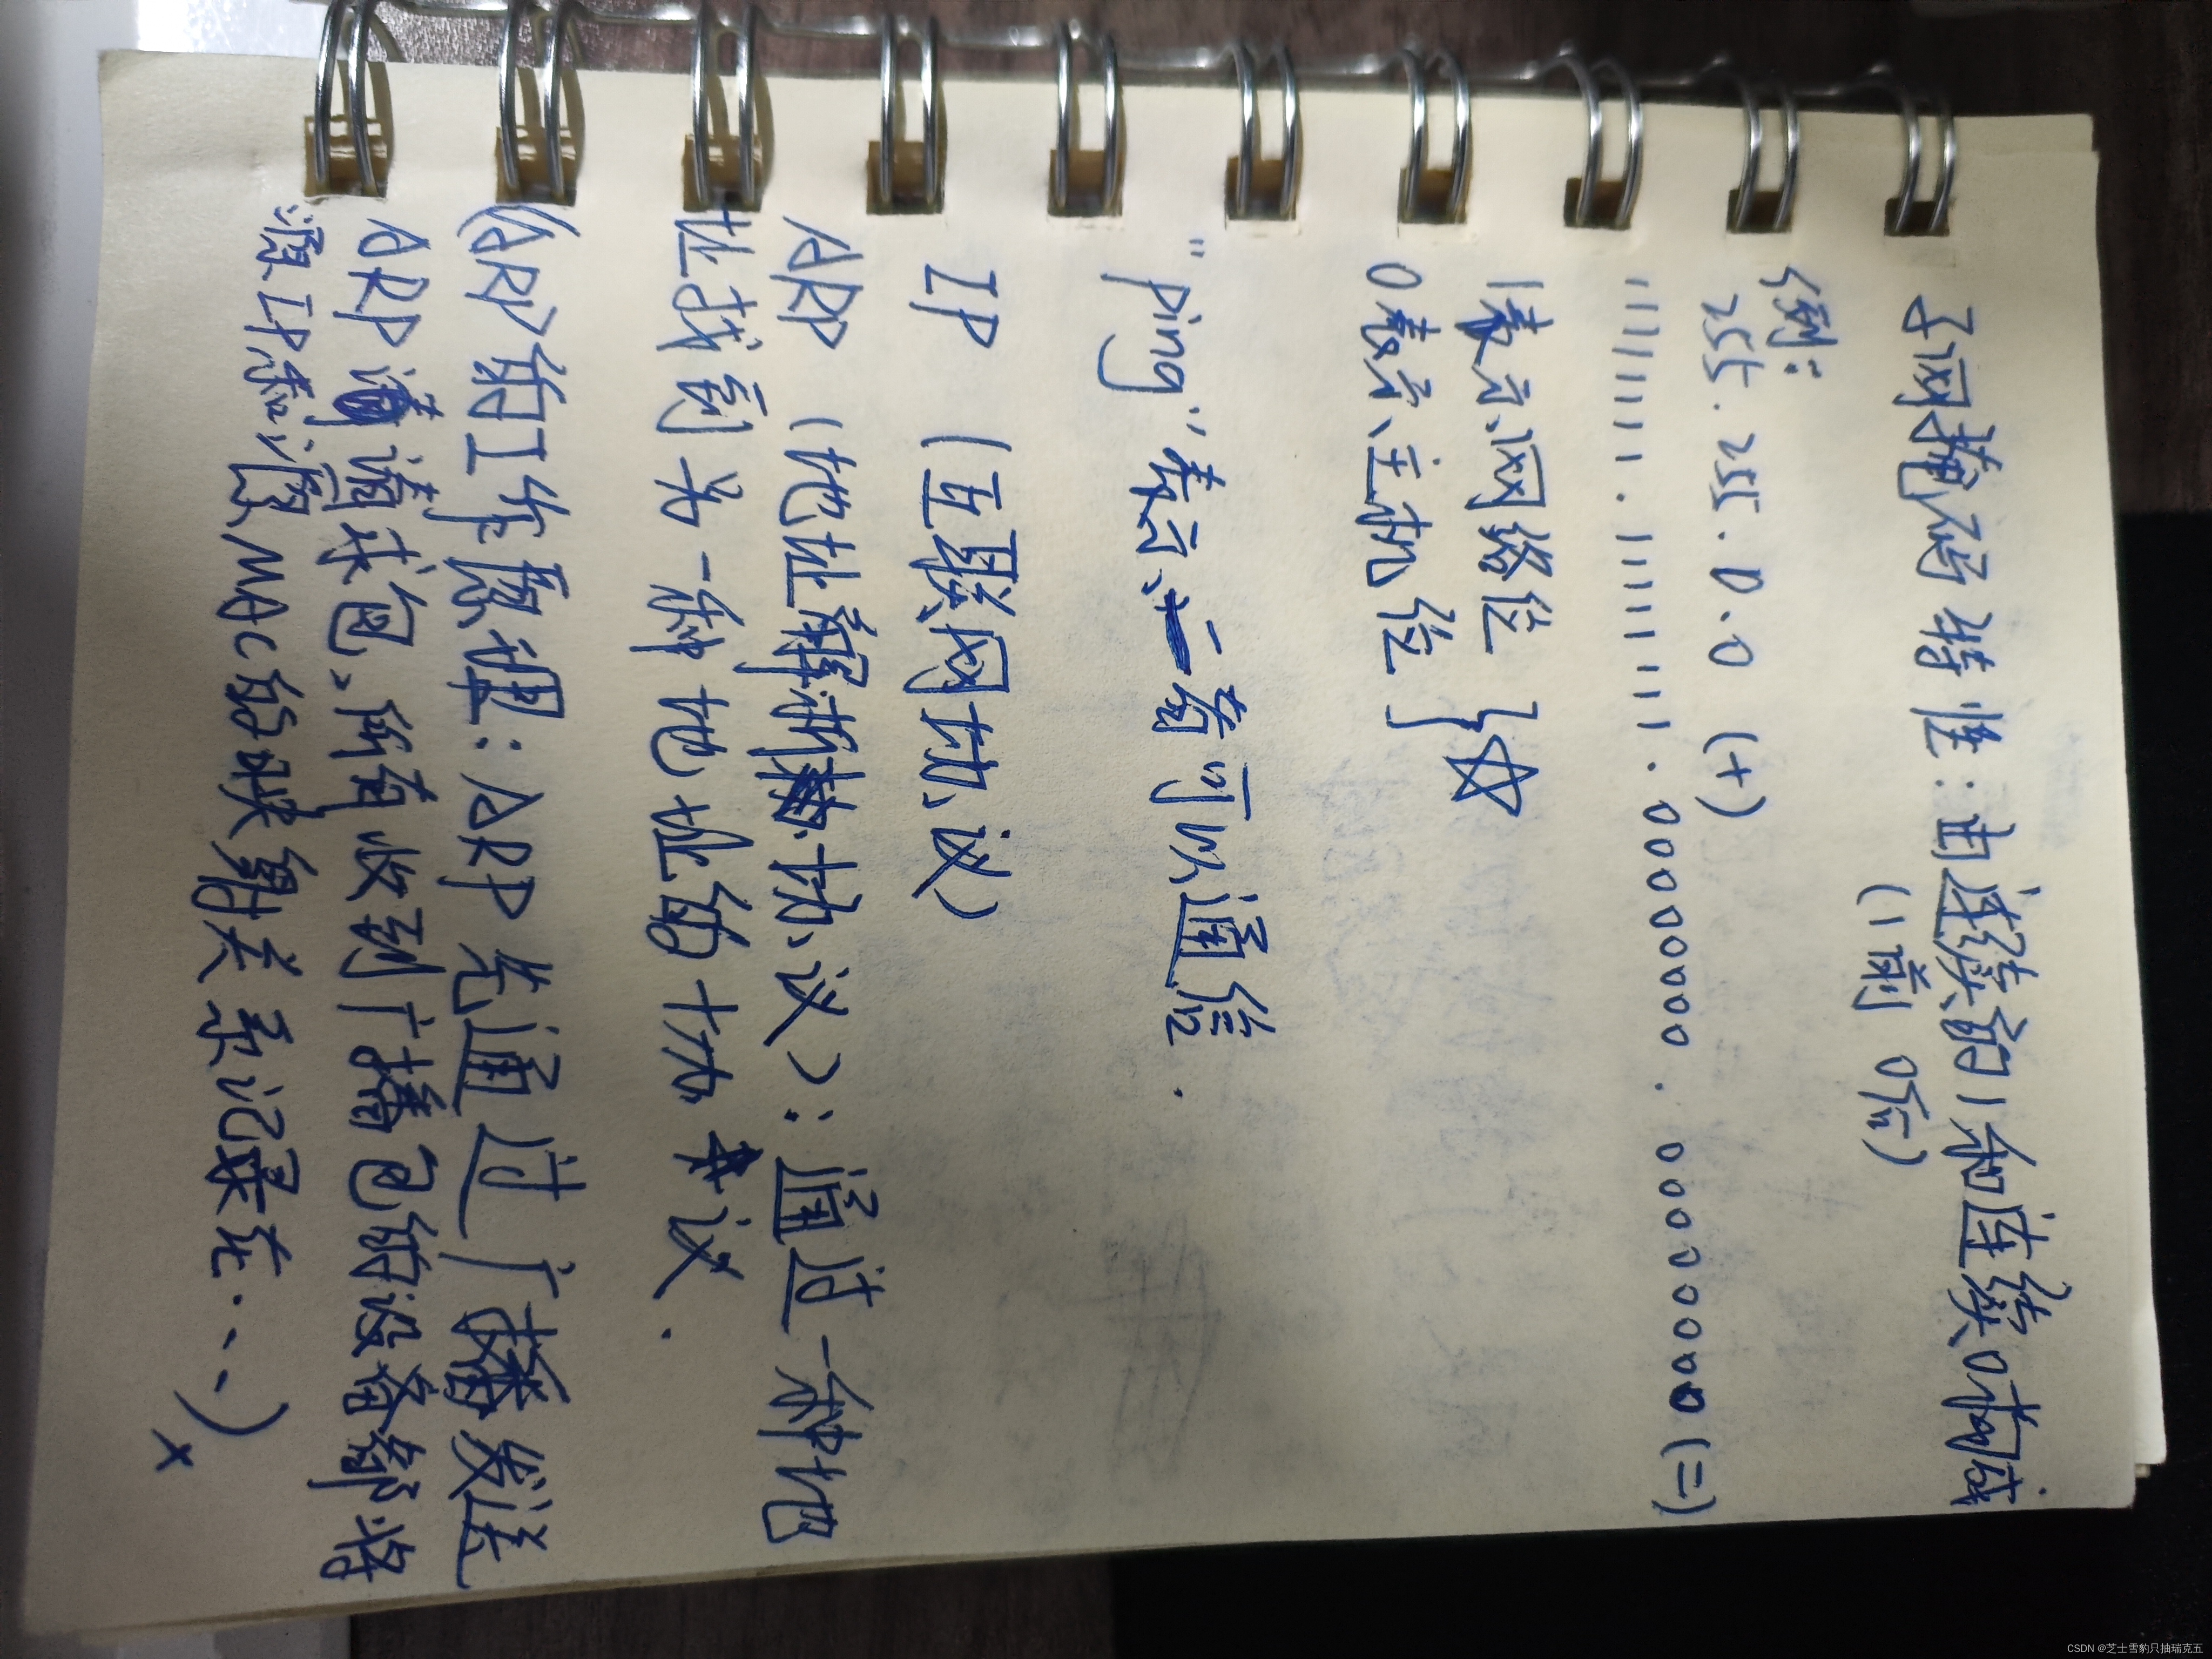 子网掩码特性：由连续的1和连续0构成
(1前 0后)
例：
255.255.0.0 (十)
11111111.11111111.00000000.00000000 (二)
1表示网络位
0表示主机位
"ping"表示一方可以通信.
IP (互联网协议)
ARP (地址解析协议)：通过一种地
址找到另一种地址的协议.
(ARP的工作原理：ARP先通过广播发送
ARP请求包，所有收到广播包的设备都将
源IP和源MAC的映射关系记录在...)
CSDN @芝士雪豹只抽瑞克五